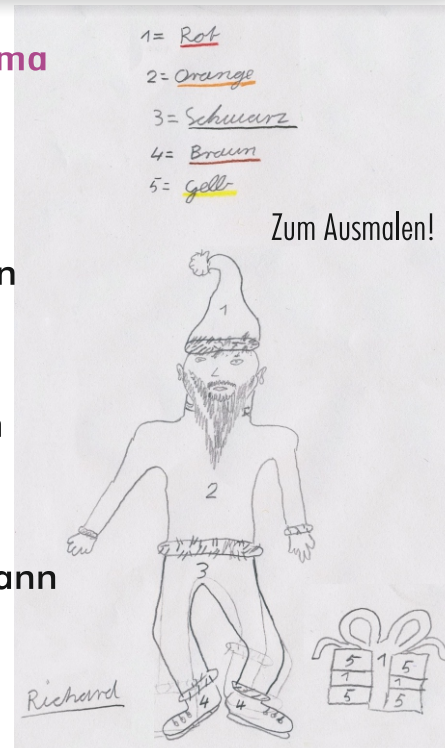 ma
1= Rot
2= Orange
3= Schwarz
4= Braun
5= gelb
Zum Ausmalen!
n
1
n
2
ann
3
5 1 5
1 1
5 5
4 4
Richard